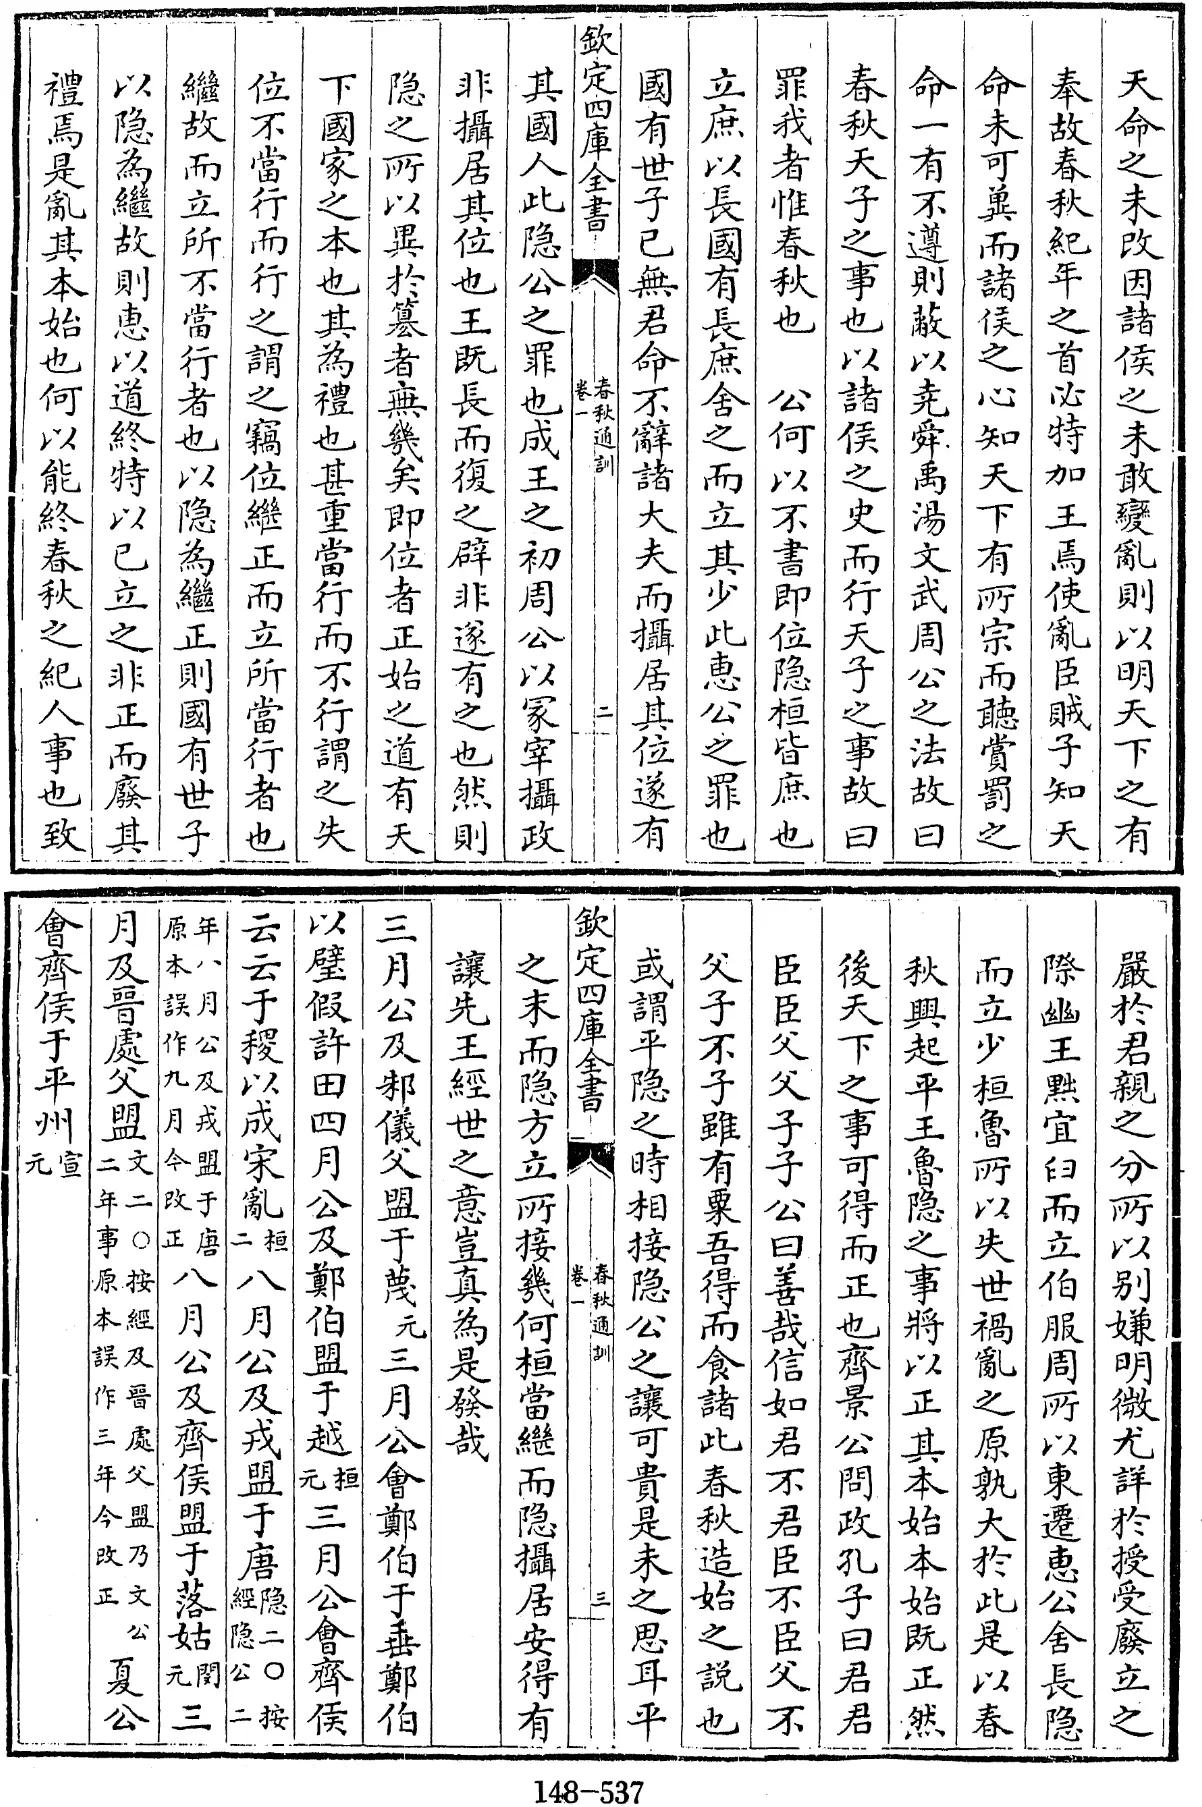 天命之未改因諸侯之未敢變亂則以明天下之有
奉故春秋紀年之首必特加王焉使亂臣賊子知天
命未可冀而諸侯之心知天下有所宗而聽賞罰之
命一有不遵則蔽以堯舜禹湯文武周公之法故曰
春秋天子之事也以諸侯之史而行天子之事故曰
罪我者惟春秋也　公何以不書即位隐桓皆庶也
立庶以長國有長庶舍之而立其少此惠公之罪也
國有世子已無君命不辭諸大夫而攝居其位遂有
欽定四庫全書
春秋通訓
卷一
二
其國人此隐公之罪也成王之初周公以冢宰攝政
非攝居其位也王既長而復之辟非遂有之也然則
隐之所以異於篡者無幾矣即位者正始之道有天
下國家之本也其為禮也甚重當行而不行謂之失
位不當行而行之謂之竊位繼正而立所當行者也
繼故而立所不當行者也以隐為繼正則國有世子
以隐為繼故則惠以道終特以已立之非正而廢其
禮焉是亂其本始也何以能終春秋之紀人事也致
嚴於君親之分所以别嫌明微尤詳於授受廢立之
際幽王黜宜臼而立伯服周所以東遷惠公舍長隐
而立少桓魯所以失世禍亂之原孰大於此是以春
秋興起平王魯隐之事將以正其本始本始既正然
後天下之事可得而正也齊景公問政孔子曰君君
臣臣父父子子公曰善哉信如君不君臣不臣父不
父子不子雖有粟吾得而食諸此春秋造始之説也
或謂平隐之時相接隐公之讓可貴是未之思耳平
欽定四庫全書
春秋通訓
卷一
三
之末而隐方立所接幾何桓當繼而隐攝居安得有
讓先王經世之意豈真為是發哉
三月公及邾儀父盟于蔑元三月公會鄭伯于垂鄭伯
以璧假許田四月公及鄭伯盟于越桓元三月公會齊侯
云云于稷以成宋亂桓二八月公及戎盟于唐隐二○按經隐公二
年八月公及戎盟于唐原本誤作九月今改正八月公及齊侯盟于落姑閔元三
月及晉處父盟文二○按經及晉處父盟乃文公二年事原本誤作三年今改正夏公
會齊侯于平州宣元
148-537